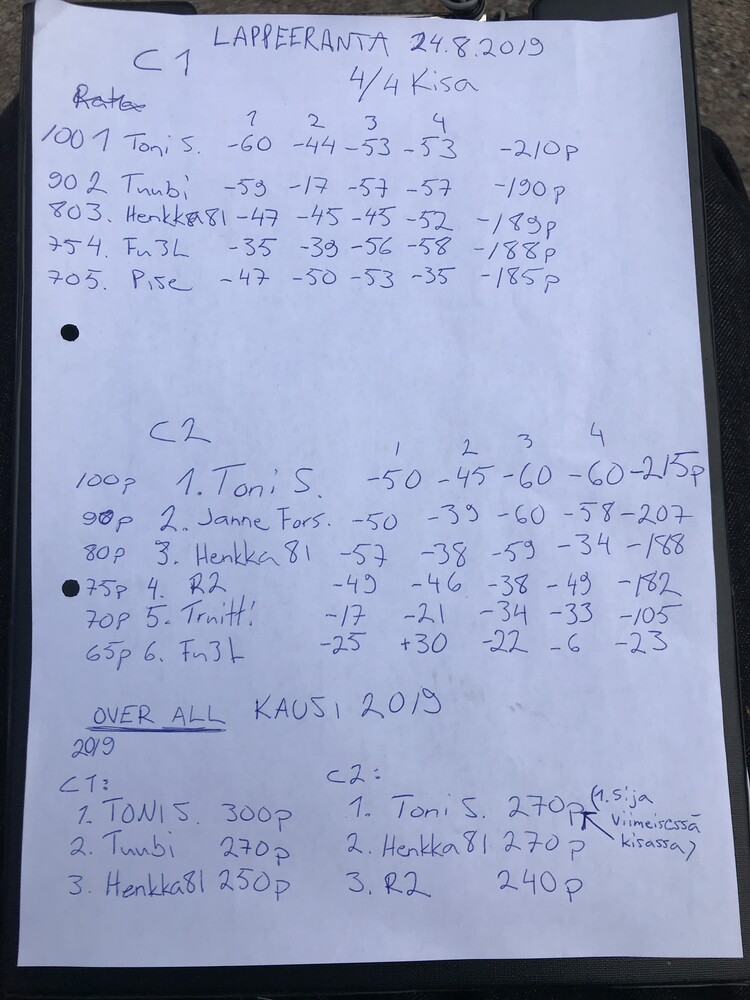 LAPPEERANTA 24.8.2019
C1
4/4 Kisa
1 2 3 4
100 1 Toni S. -60 -44 -53 -53 -210p
90 2 Tuubi -59 -17 -57 -57 -190p
80 3. Henkka81 -47 -45 -45 -52 -189p
75 4. Fu3L -35 -39 -56 -58 -188p
70 5. Pise -47 -50 -53 -35 -185p
C2
1 2 3 4
100p 1. Toni S. -50 -45 -60 -60 -215p
90p 2. Janne Fors. -50 -39 -60 -58 -207
80p 3. Henkka 81 -57 -38 -59 -34 -188
75p 4. R2 -49 -46 -38 -49 -182
70p 5. Truitt! -17 -21 -34 -33 -105
65p 6. Fu3L -25 +30 -22 -6 -23
OVER ALL KAUSI 2019
2019
C1: C2:
1. TONI S. 300p 1. Toni S. 270p (1. sija viimeisessä kisassa)
2. Tuubi 270p 2. Henkka81 270p
3. Henkka81 250p 3. R2 240p